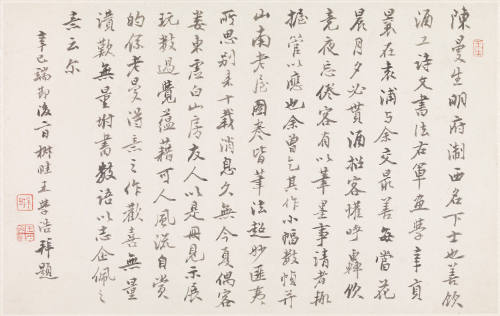 陳曼生明府浙西名下士也善飲
酒工詩文書法右軍畫學辛貢
最在袁浦与余交最善每當花
晨月夕必貰酒招客讙呼轟飲
竟夜忘倦客有以筆墨事請者輒
握管以應也余曾乞其作小幅數幀并
山南老屋圖卷皆筆法超妙匪夷
所思別來十載消息久無今夏偶客
婁東虛白山房友人以是冊見示展
玩數過覺蘊藉可人風流自賞
的係老曼得意之作歡喜無量
讚歎無量附書數語以志企佩之
意云尔
辛巳端節後一日椒畦王學浩拜題